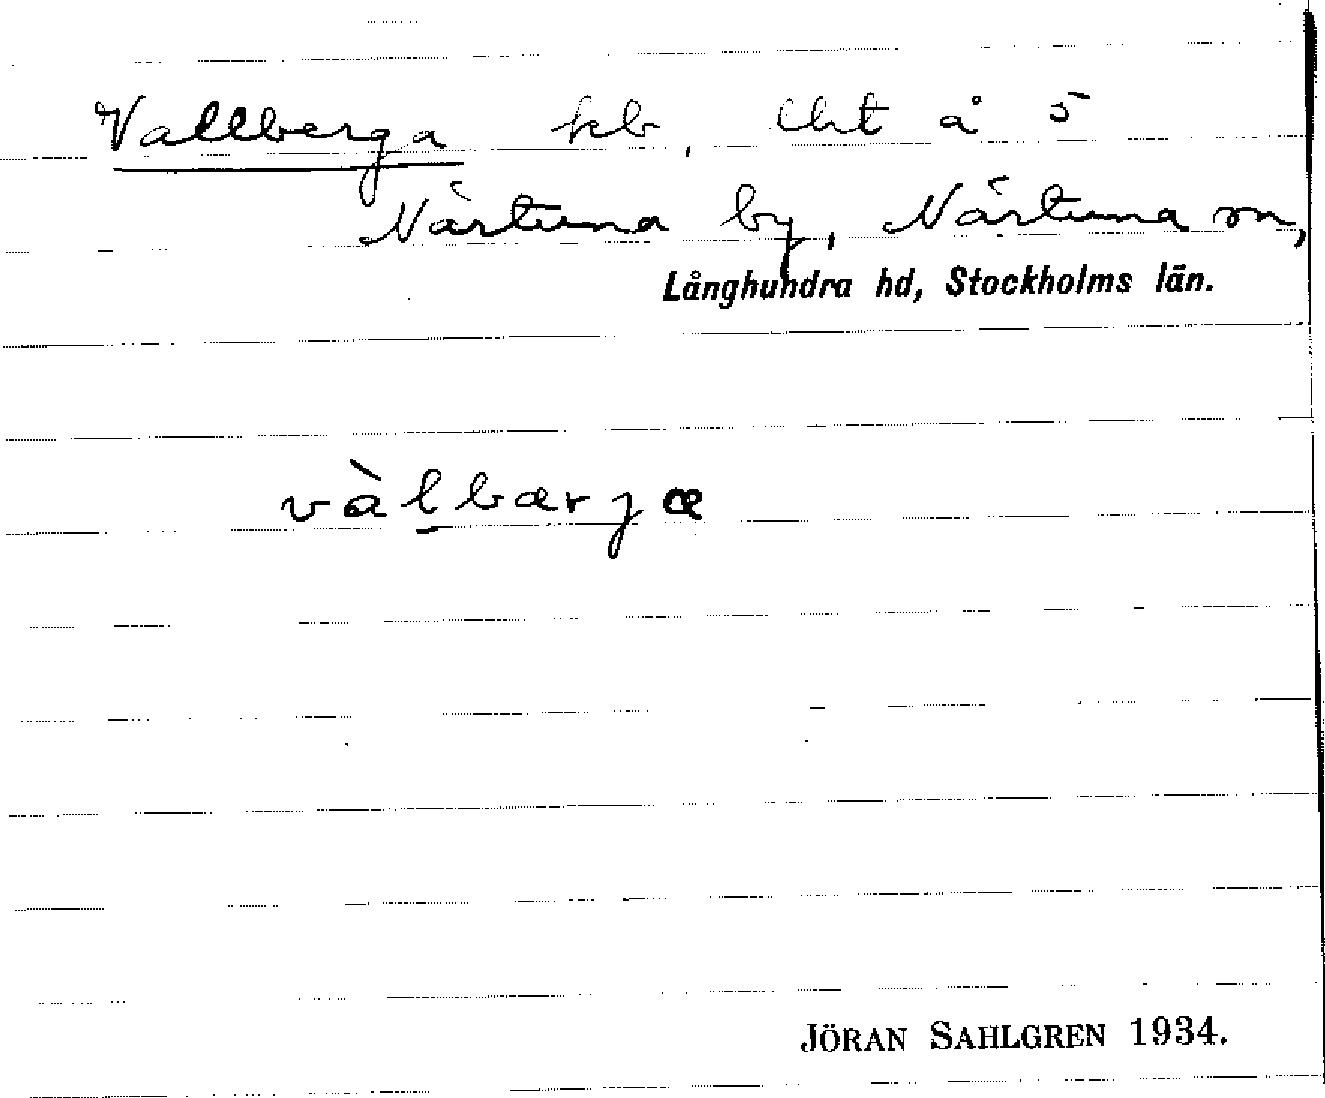 Vallberga hb, lht å 5
Närtuna by, Närtuna sn,
Långhundra hd, Stockholms län.
vàlbærjæ
JÖRAN SAHLGREN 1934.